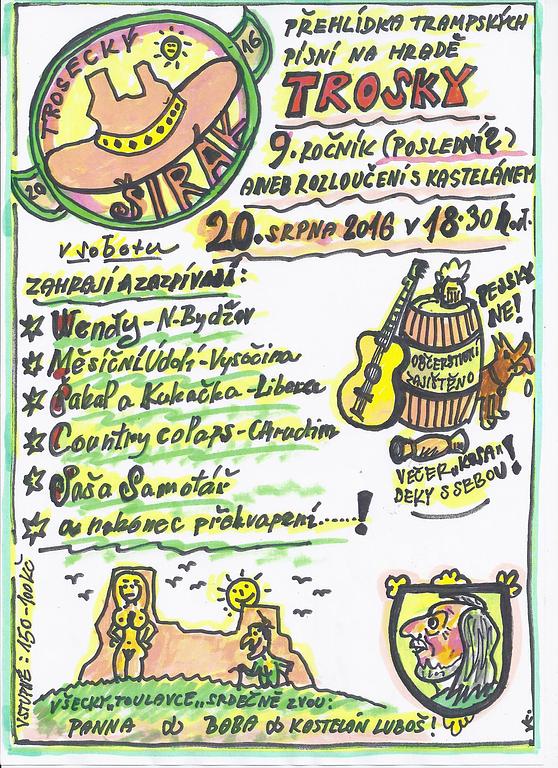 TROSECKÝ
ŠIRÁK
20
16
PŘEHLÍDKA TRAMPSKÝCH
PÍSNÍ NA HRADĚ
TROSKY
9. ROČNÍK (POSLEDNÍ?)
ANEB ROZLOUČENÍ S KASTELÁNEM
v sobotu 20. SRPNA 2016 V 18:30 h.
ZAHRAJÍ A ZAZPÍVAJÍ:
Wendy - N. Bydžov
Měsíční Údolí - Vysočina
Šakal a Kukačka - Liberec
Country colaps - Chrudim
Sáša Samotář
a nakonec překvapení......!
PEJSKY
NE!
OBČERSTVENÍ
ZAJIŠTĚNO
VEČER „KOSA"
DEKY S SEBOU!
VSTUPNÉ: 150-100 KČ
VŠECKY „TOULAVCE" SRDEČNĚ ZVOU:
PANNA do BABA do KASTELÁN LUBOŠ!